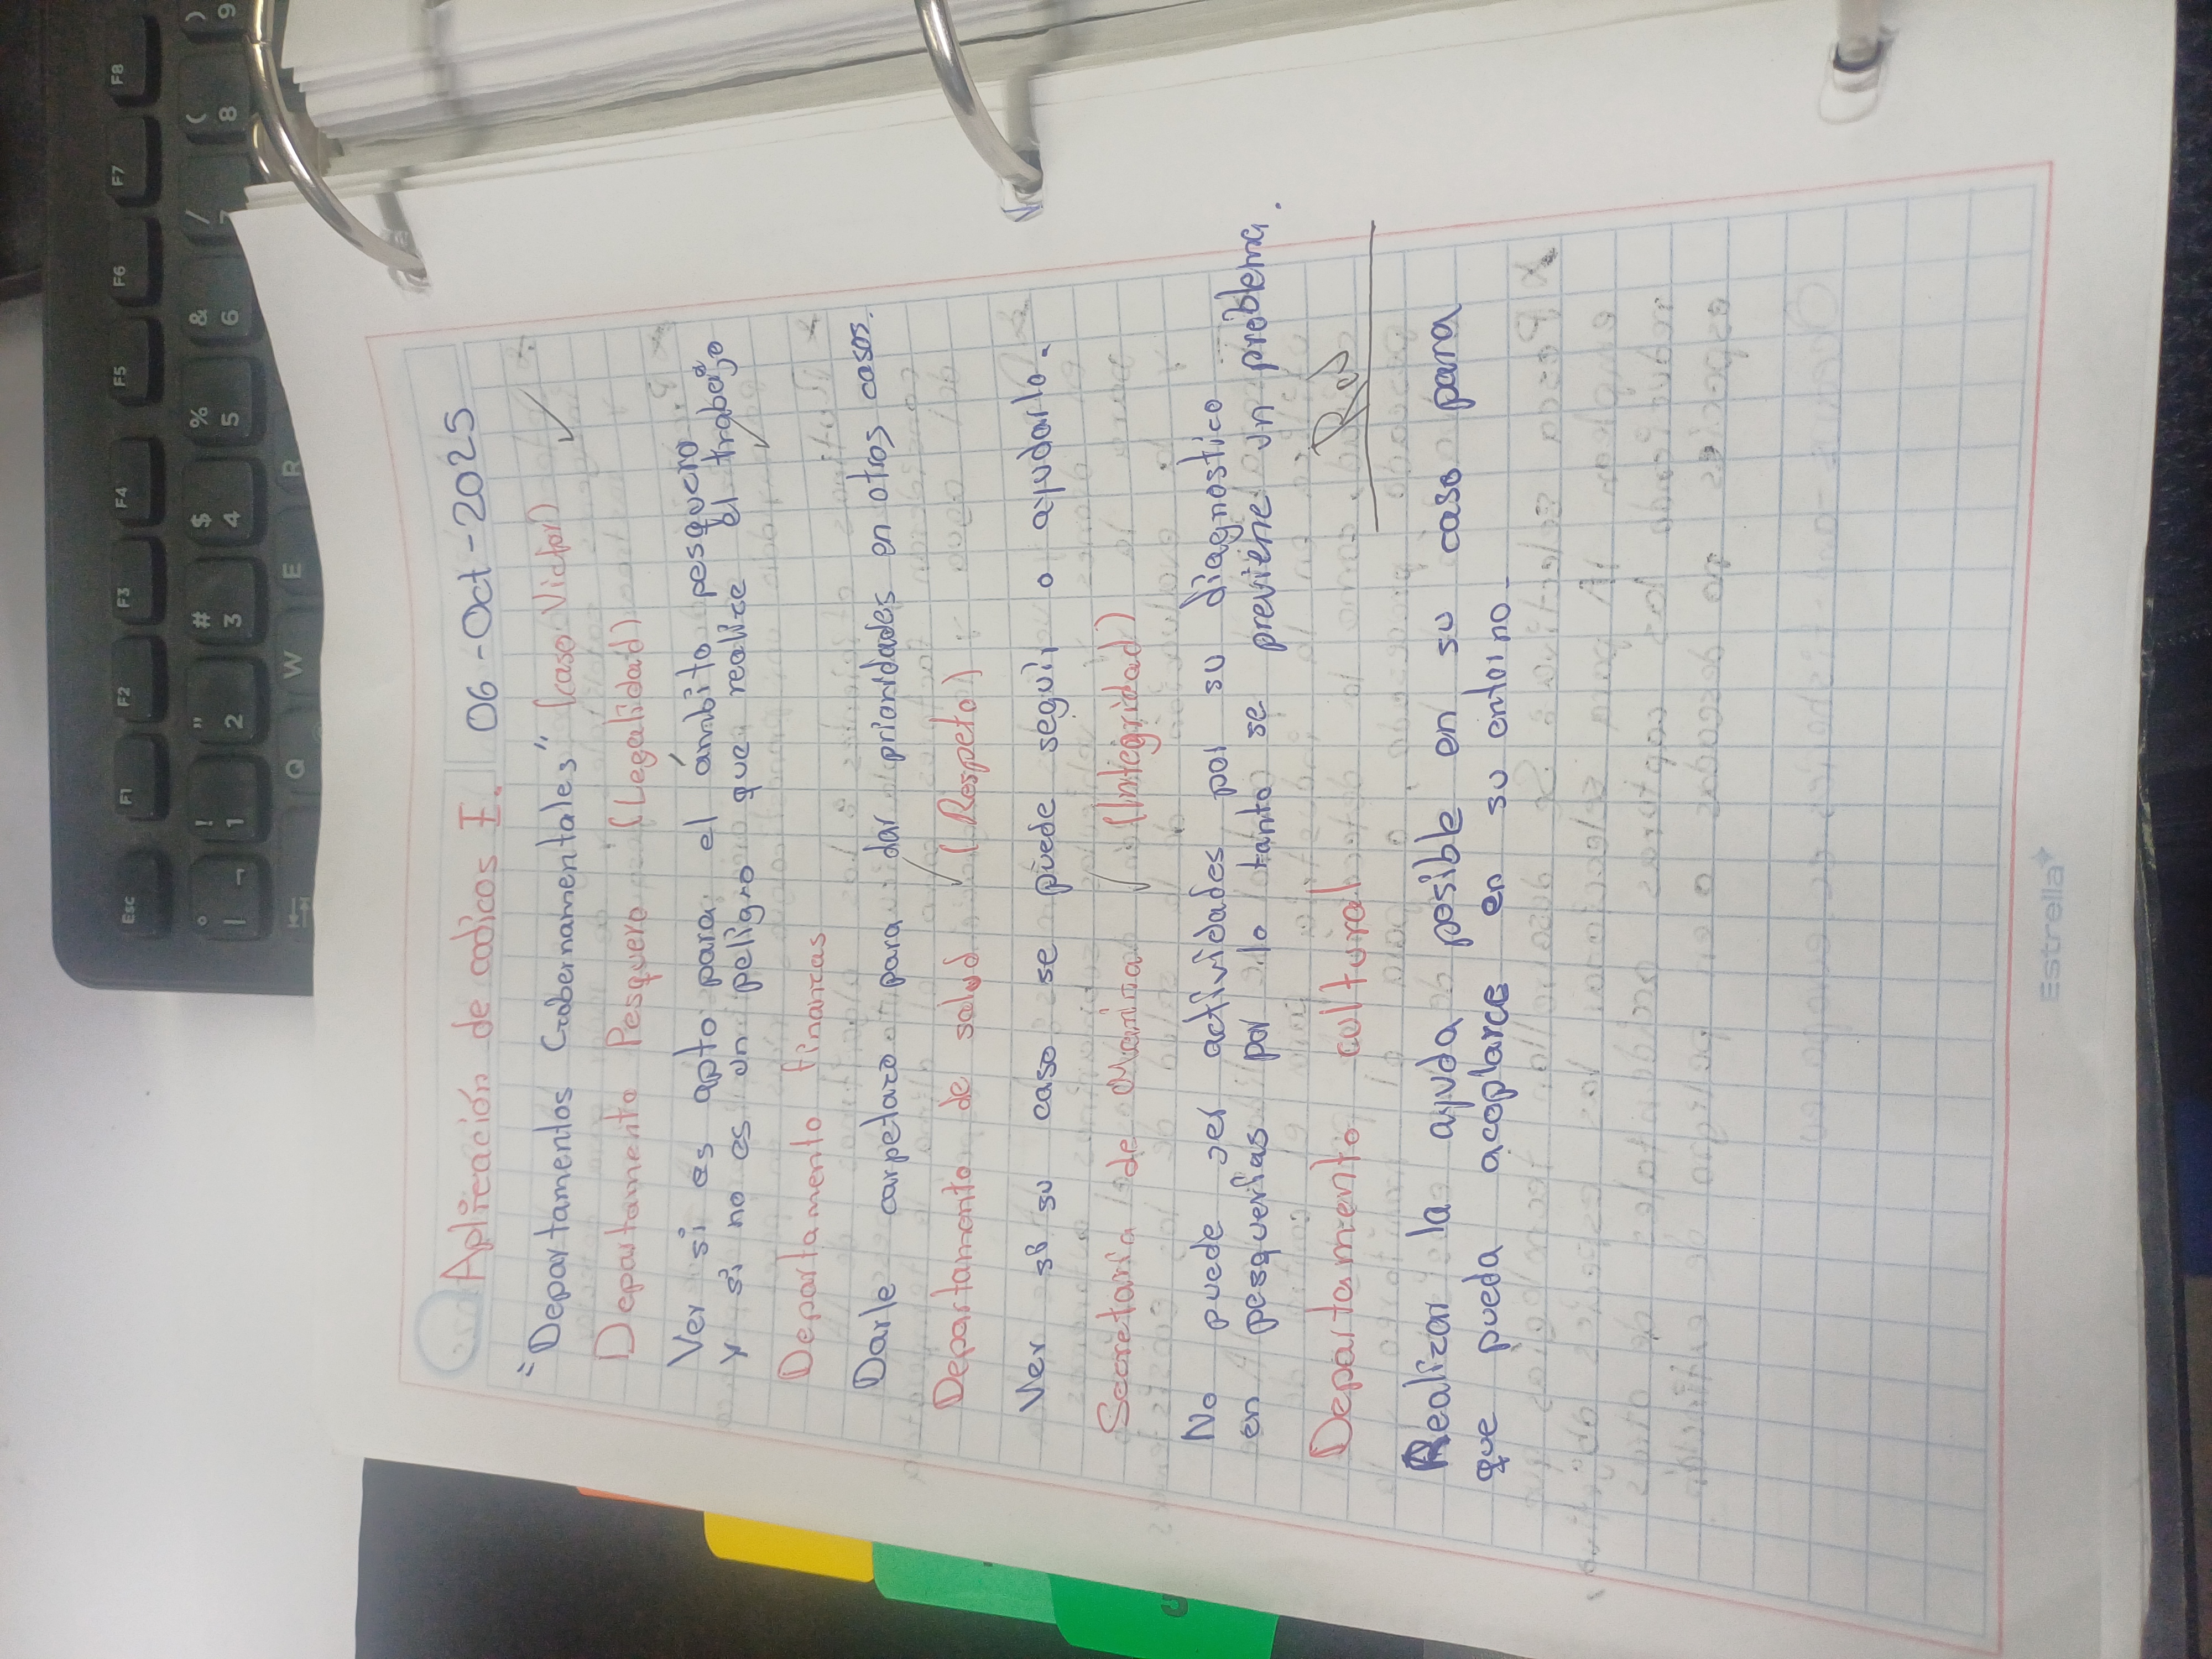 Aplicación de codicos I. 06-Oct-2025
"Departamentos Gobernamentales" (caso Victor)
Departamento Pesquero (Legalidad)
Ver si es apto para el ámbito pesquero
y si no es un peligro que realice el trabajo
Departamento finanzas
Darle carpetazo para dar prioridades en otros casos.
Departamento de salud (Respeto)
Ver su caso se puede seguir o ayudarlo.
Secretaria de Marina (Integridad)
No puede ser actividades por su diagnostico
en pesquerias por lo tanto se previene un problema.
Departamento cultural
Realizar la ayuda posible en su caso para
que pueda acoplarce en su entorno
Estrella
Esc F1 F2 F3 F4 F5 F6 F7 F8
° | ¬ ! 1 " 2 # 3 $ 4 % 5 & 6 / 7 ( 8 ) 9
Q W E R